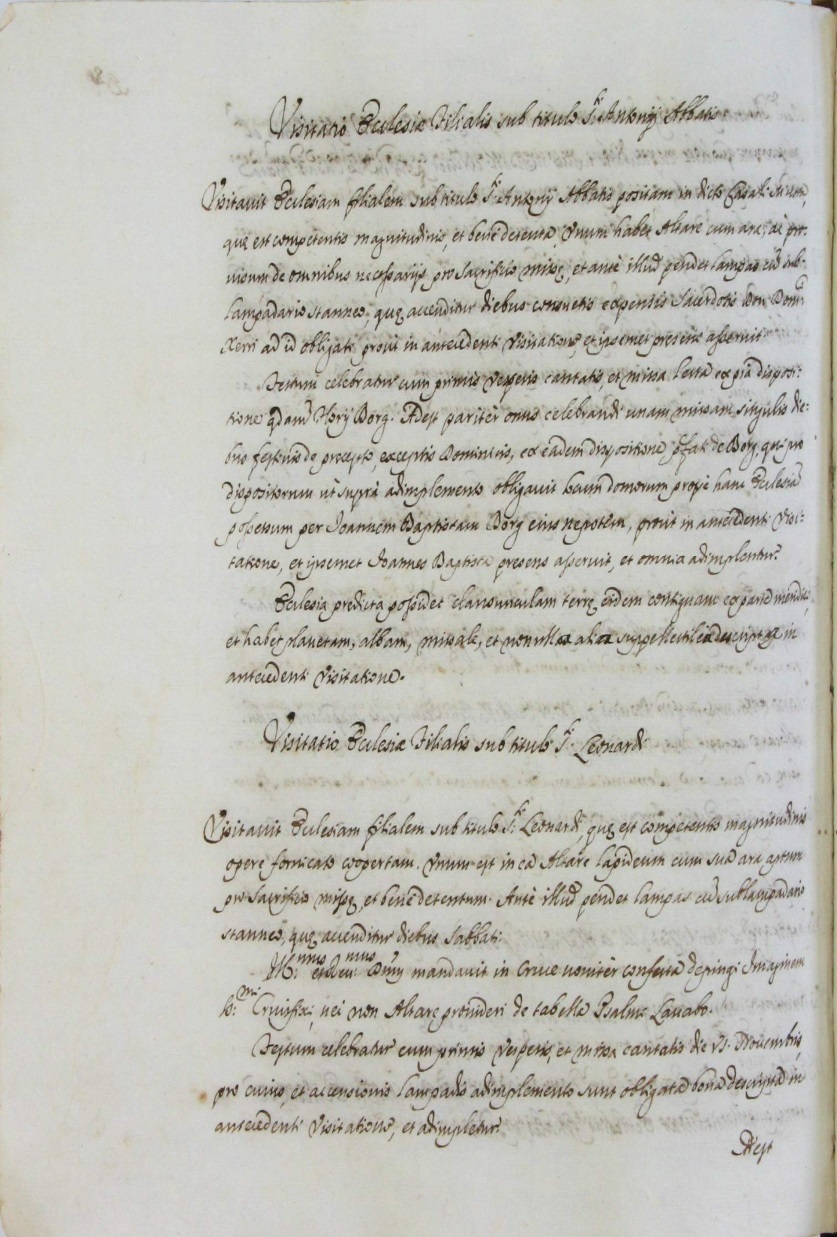 Visitatio Ecclesiæ Filialis sub titulo S.ti Antonij Abbatis
Visitavit Ecclesiam filialem sub titulo S.ti Antonij Abbatis positam in dicto Casali
quę est competentis magnitudinis, et bene detenta, Unum habet Altare cum ara, ac pro:
visum de omnibus necessarijs pro Sacrificio missę, et ante illud pendet lampas cū sub:
lampadario stanneo, quę accenditur diebus consuetis expensis Sacerdotis Don Dom.ci
Xerri ad id obligati prout in antecedenti Visitatione, et ipsemet presens asseruit
Festum celebratur cum primis Vesperis cantatis, et missa lecta ex pia disposi:
tione qdam Borg. Adest pariter onus celebrandi unam missam singulis die:
bus festivis de precepto, exceptis Dominicis, ex eadem dispositione de Borg, qui pro
dispositorum ut supra adimplemento obligavit locum domorum prope hanc Ecclesiā
possessum per Joannem Baptistam Borg eius nepotem, prout in antecedenti Visi:
tatione, et ipsemet Joannes Baptista presens asseruit, et omnia adimplentur.
Ecclesia predicta possidet clausunculam terrę eidem contiguam ex parte
et habet planetam, albam, missale, et nonnulla alia suppellectilia descripta in
antecedenti Visitatione.
Visitatio Ecclesiæ Filialis sub titulo S.ti Leonardi
Visitavit Ecclesiam filialem sub titulo S.ti Leonardi, quę est competentis magnitudinis
opere fornicato coopertam. Unum est in ea Altare lapideum cum sua ara aptum
pro Sacrificio missę, et bene detentum. Ante illud pendet lampas cū sublampadario
stanneo, quę accenditur diebus Sabbati
Ill.mus et Rev.mus Dnūs mandavit in Cruce noviter confecta depingi Imaginem
S.mi Crucifixi, nec non Altare provideri de tabella Psalmi Lavabo.
Festum celebratur cum primis Vesperis, et missa cantatis die VI. Novembris,
pro cuius, et accensionis lampadis adimplemento sunt obligata bona descripta in
antecedenti Visitatione, et adimpletur.
Adest